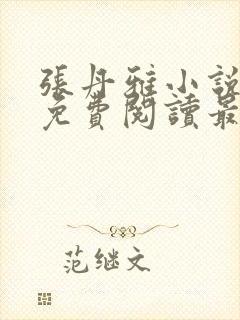 張丹雅小說
免費閱讀最
范继文